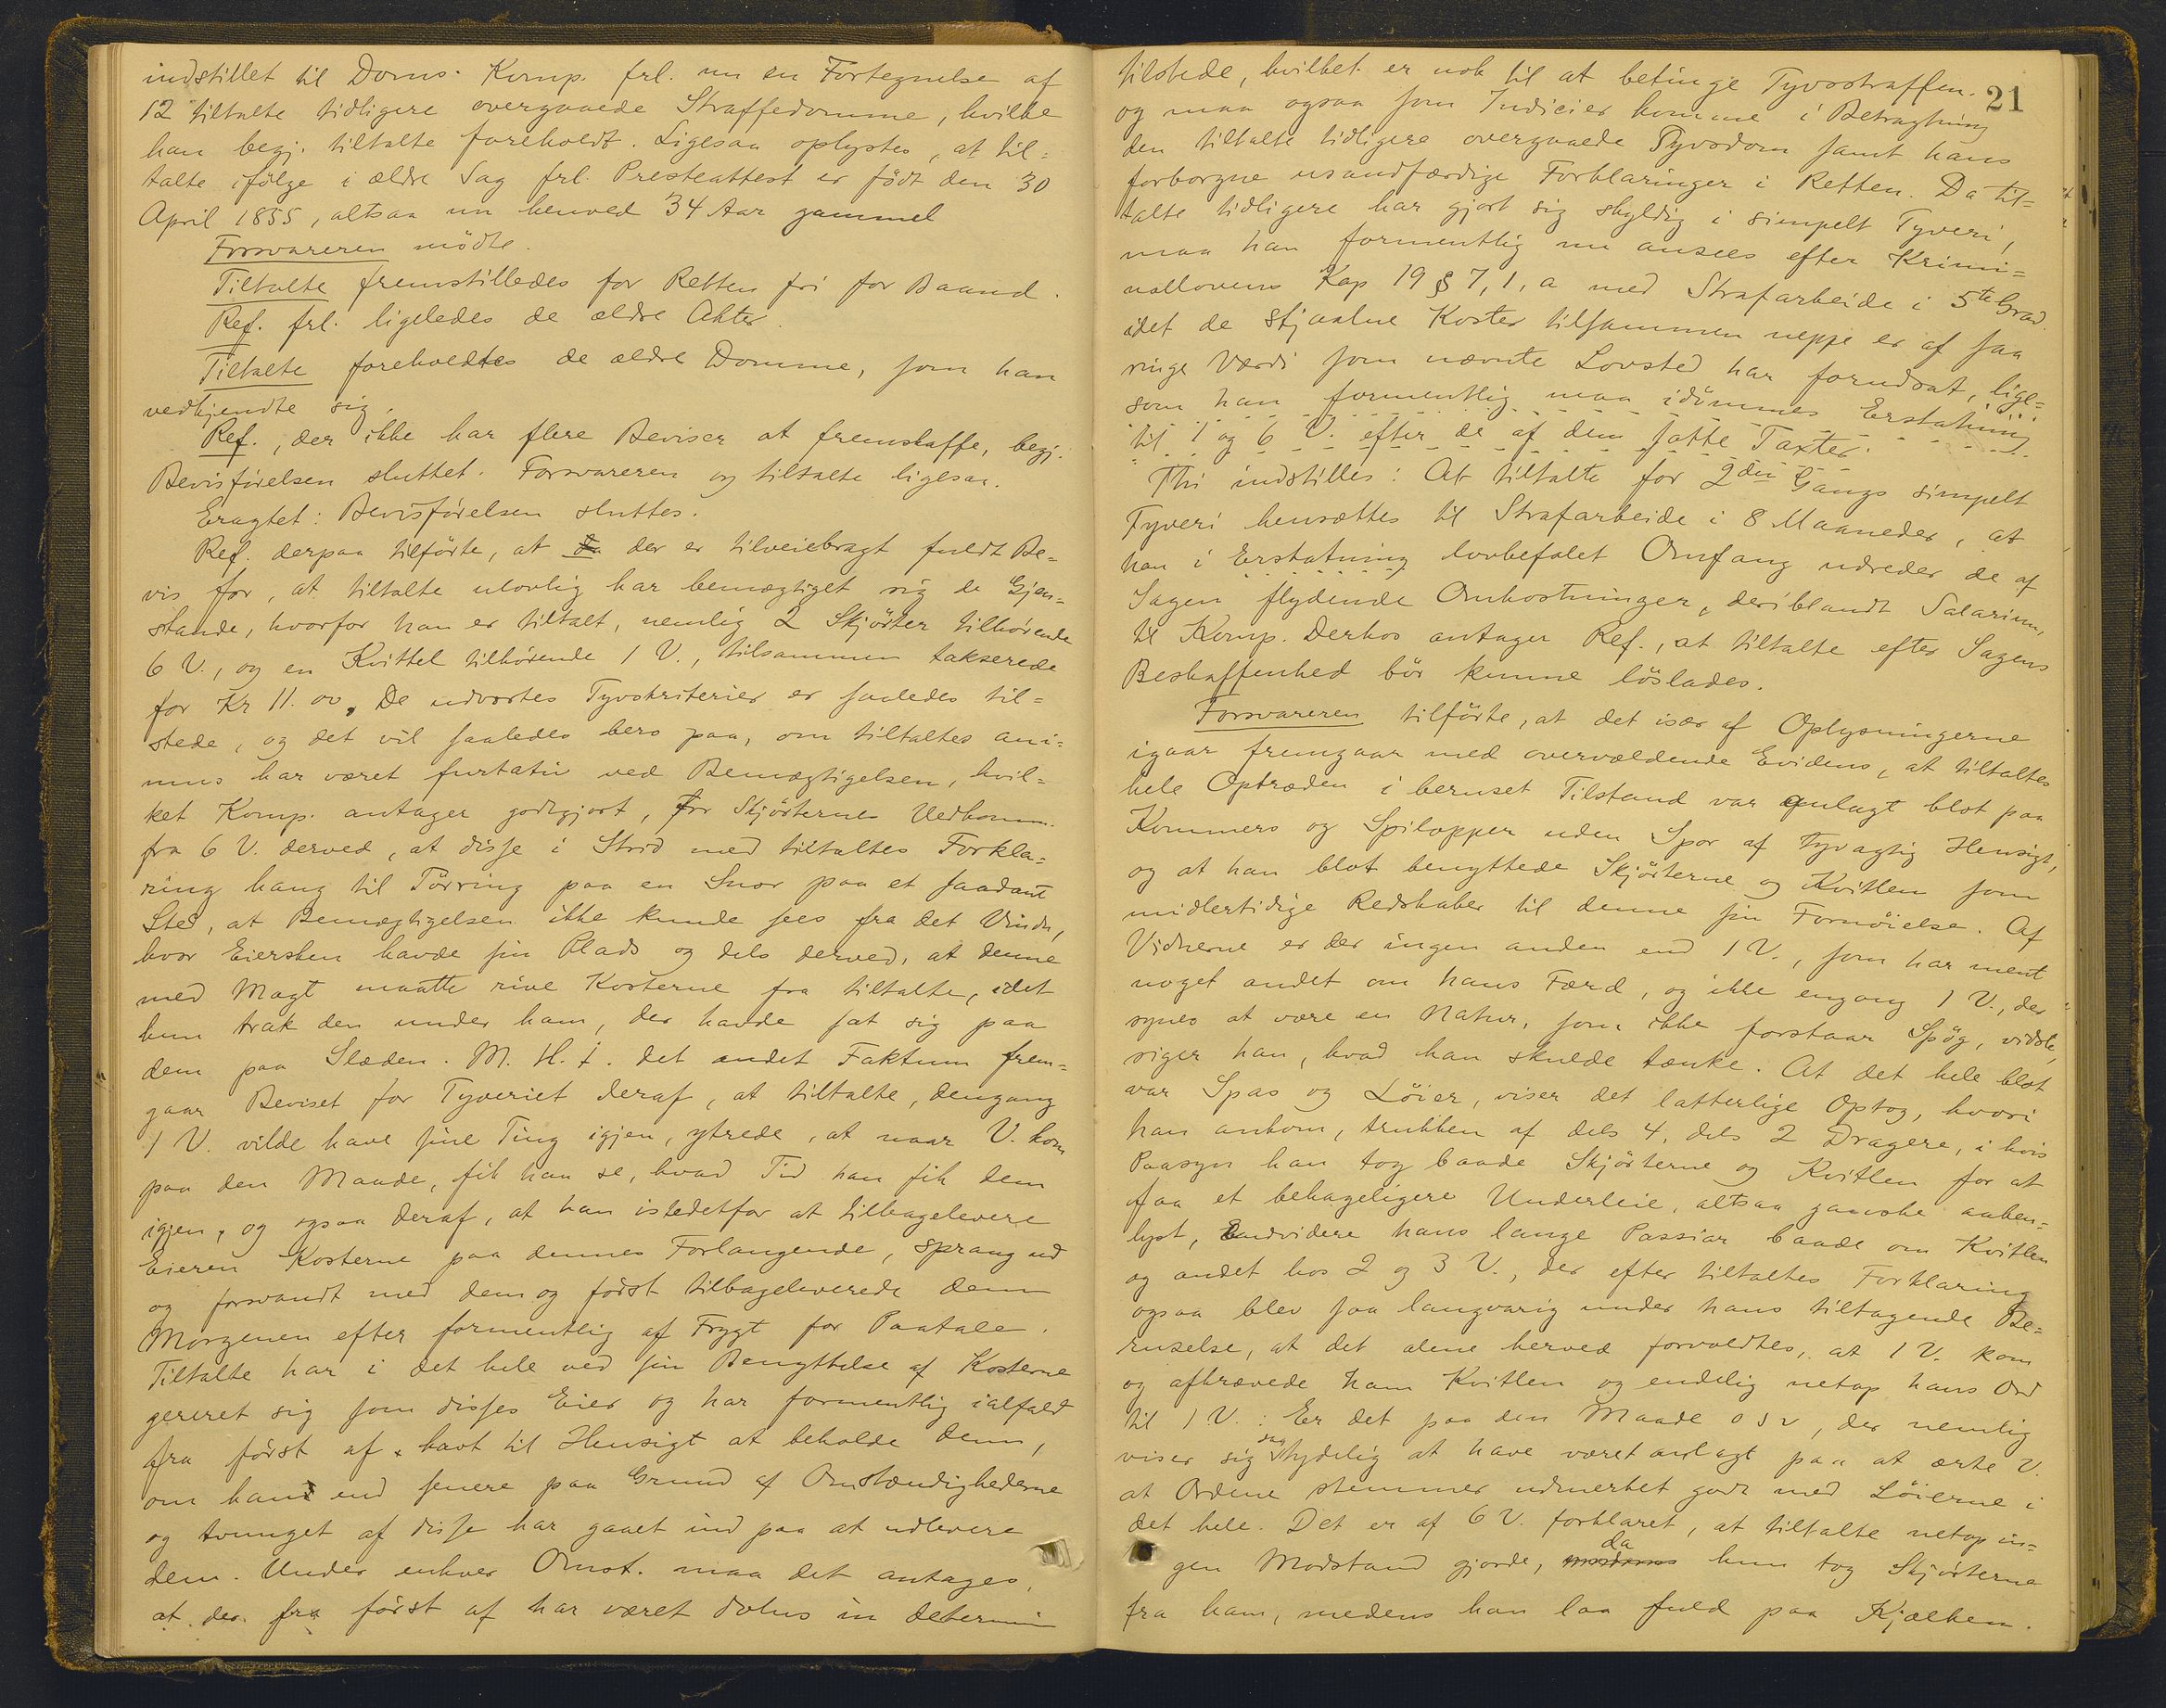 indstillet til Doms. Komp. frl. nu en Fortegnelse af
12 tiltalte tidligere overgaaede Straffedomme, hvilke
han begj. tiltalte foreholdt. Ligesaa oplystes, at til=
talte ifölge i ældre Sag frl. Presteattest er födt den 30
April 1855, altsaa nu henved 34 Aar gammel
Forsvareren mödte.
Tiltalte fremstilledes for Retten fri for Baand.
Ref. frl. ligeledes de ældre Akter.
Tiltalte foreholdtes de ældre Domme, som han
vedkjendte sig.
Ref., der ikke har flere Beviser at fremskaffe, begj.
Bevisförelsen sluttet. Forsvareren og tiltalte ligesaa.
Eragtet: Bevisförelsen sluttes.
Ref. derpaa tilförte, at da der er tilveiebragt fuldt Be=
vis for, at tiltalte ulovlig har bemægtiget sig de Gjen=
stande, hvorfor han er tiltalt, nemlig 2 Skjörter tilhörende
6 V., og en Kvittel tilhörende 1 V., tilsammen takserede
for Kr 11.00. De udvortes Tyvskriterier er saaledes til=
stede, og det vil saaledes bero paa, om tiltaltes ani=
mus har været furtativ ved Bemægtigelsen, hvil=
ket Komp. antager godtgjort, for Skjörternes Vedkomm.
fra 6 V. derved, at disse i Strid med tiltaltes Forkla=
ring hang til Törring paa en Snor paa et saadant
Sted, at Bemægtigelsen ikke kunde sees fra det Vindu,
hvor Eiersken havde sin Plads og dels derved, at denne
med Magt maatte rive Kosterne fra tiltalte, idet
hun trak den under ham, der havde sat sig paa
dem paa Slæden. M. H. t. det andet Faktum frem=
gaar Beviset for Tyveriet deraf, at tiltalte, dengang
1 V. vilde have sine Ting igjen, ytrede, at naar V. kom
paa den Maade, fik han se, hvad Tid han fik dem
igjen, og ogsaa deraf, at han istedetfor at tilbagelevere
Eieren Kosterne paa dennes Forlangende, sprang ud
og forsvandt med dem og först tilbageleverede dem
Morgenen efter formentlig af Frygt for Paatale.
Tiltalte har i det hele ved sin Benyttelse af Kosterne
gereret sig som disses Eier og har formentlig ialfald
fra först af havt til Hensigt at beholde dem,
om han end senere paa Grund af Omstændighederne
og tvunget af disse har gaaet ind paa at udlevere
dem. Under enhver Omst. maa det antages,
at der fra först af har været dolus in determi
21
tilstede, hvilket er nok til at betinge Tyvsstraffen.
og maa ogsaa som Indicier komme i Betragtning
den tiltalte tidligere overgaaede Tyvsdom samt hans
forborgne usandfærdige Forklaringer i Retten. Da til=
talte tidligere har gjort sig skyldig i simpelt Tyveri,
maa han formentlig nu ansees efter Krimi=
nallovens Kap 19 § 7, 1, a med Strafarbeide i 5te Grad.
idet de stjaalne Koster tilsammen neppe er af saa
ringe Værdi som nævnte Lovsted har forudsat, lige=
som han formentlig maa idömmes Erstatning
til 1 og 6 V. efter de af dem satte Taxter.
Thi indstilles: At tiltalte for 2den Gangs simpelt
Tyveri hensættes til Strafarbeide i 8 Maaneder, at
han i Erstatning lovbefalet Omfang udreder de af
Sagen flydende Omkostninger, deriblandt Salarium,
til Komp. Derhos antager Ref., at tiltalte efter Sagens
Beskaffenhed bör kunne löslades.
Forsvareren tilförte, at det især af Oplysningerne
igaar fremgaar med overvældende Evidens, at tiltaltes
hele Optræden i beruset Tilstand var anlagt blot paa
Kommers og Spilopper uden Spor af tyvagtig Hensigt,
og at han blot benyttede Skjörterne og Kvitlen som
midlertidige Redskaber til denne sin Fornöielse. Af
Vidnerne er der ingen anden end 1 V., som har ment
noget andet om hans Færd, og ikke engang 1 V., der
synes at være en Natur, som ikke forstaar Spög, vidste,
siger han, hvad han skulde tænke. At det hele blot
var Spas og Löier, viser det latterlige Optog, hvori
han ankom, trukken af dels 4, dels 2 Dragere, i hvis
Paasyn han tog baade Skjörterne og Kvitlen for at
faa et behageligere Underleie, altsaa ganske aaben=
lyst, Endvidere hans lange Passiar baade om Kvitlen
og andet hos 2 og 3 V., der efter tiltaltes Forklaring
ogsaa blev saa langvarig under hans tiltagende Be=
ruselse, at det alene herved forvoldtes, at 1 V. kom
og afkrævede ham Kvitlen og endelig netop hans Ord
til 1 V.: Er det paa den Maade osv, der nemlig
viser sig tydelig at have været anlagt paa at ærte V.
at Ordene stemmer udmerket godt med Löierne i
det hele. Det er af 6 V. forklaret, at tiltalte netop in=
gen Modstand gjorde, da hun tog Skjörterne
fra ham, medens han laa fuld paa Kjælken.